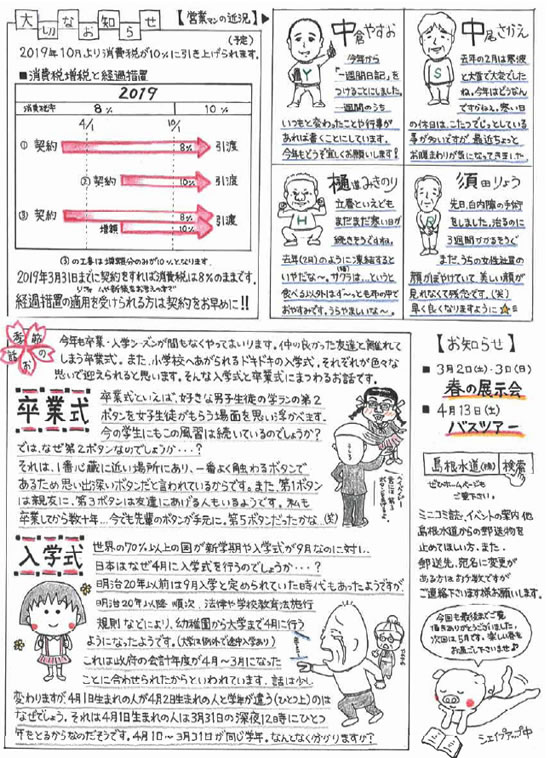 大切なお知らせ
【営業マンの近況】
(予定)
2019年10月より消費税が10%に引き上げられます。
■消費税増税と経過措置
2019
消費税率 8% 10%
4/1 10/1
① 契約 8% 引渡
② 契約 10% 引渡
③ 契約 8% 引渡
増額 10%
(3)の工事は増額分のみが10%となります。
2019年3月31日までに契約をすれば消費税は8%のままです。
リフォームや新築をお考えの方で
経過措置の適用を受けられる方は契約をお早めに!!
中倉やすお
今年から
「一週間日記」を
つけることにしました。
一週間のうち
いつもと変わったことや行事が
あれば書くことにしています。
今年もどうぞ宜しくお願いします!
Y
中尾さかえ
去年の2月は寒波
と大雪で大変でした
ね。今年はどうなん
ですかねぇ。寒い日
の休日は、こたつでじっとしている
事が多いですが、最近ちょっと
お腹まわりが気になってきました
S
樋道みさのり
立春といえども
まだまだ寒い日が
続きそうですね。
去年(2月)のように凍結すると
いやだな~。サクラは…というと
食べる以外はず~っと毛布の中で
おやすみです。うらやましいな~。
H
須田りょう
先日、白内障の手術
をしました。治るのに
3週間かかるそうで
まだ、うちの女性社員の
顔がぼやけていて、美しい顔が
見れなくて残念です。(笑)
早く良くなりますように
R
季節のお話
今年も卒業・入学シーズンが間もなくやってまいります。仲の良かった友達と離れて
しまう卒業式。また、小学校へあがられるドキドキの入学式。それぞれが色々な
思いで迎えられると思います。そんな入学式と卒業式にまつわるお話です。
卒業式
卒業式といえば、好きな男子生徒の学ランの第2
ボタンを女子生徒がもらう場面を思い浮かべます。
今の学生にもこの風習は続いているのでしょうか?
では、なぜ第2ボタンなのでしょうか・・・?
それは、1番心臓に近い場所にあり、一番よく触わるボタンで
あるため思い出深いボタンだと言われているからです。また、第1ボタン
は親友に、第3ボタンは友達にあげる人もいるようです。私も
卒業してから数十年…今でも先輩のボタンが手元に。第5ボタンだったかな…(笑)
入学式
世界の70%以上の国が新学期や入学式が9月なのに対し…
日本はなぜ4月に入学式を行うのでしょうか・・・?
明治20年以前は9月入学と定められていた時代もあったようですが
明治20年以降 順次、法律や学校教育法施行
規則などにより、幼稚園から大学まで4月に行う
ようになったようです。(大学は例外で途中入学あり)
これは政府の会計年度が4月~3月になった
ことに合わせられたからといわれています。話は少し
変わりますが、4月1日生まれの人が4月2日生まれの人と学年が違う(ひとつ上)のは
なぜでしょう。それは4月1日生まれの人は3月31日の深夜12時にひとつ
年をとるからなのだそうです。4月1日~3月31日が同じ学年。なんとなく分かりますか?
【お知らせ】
■ 3月2日(土)・3日(日)
春の展示会
■ 4月13日(土)
バスツアー
島根水道(株) 検索
ぜひホームページも
ご覧下さい。
ミニコミ誌で、イベントの案内 他
島根水道からの郵送物を
止めてほしい方、また、
郵送先、宛名に変更が
ある方はお手数ですが
ご連絡下さいます様お願いします。
今回も最後までご覧
頂きありがとうございました。
次回は5月です。楽しい春を
お過ごし下さいませ♪
シェイプアップ中